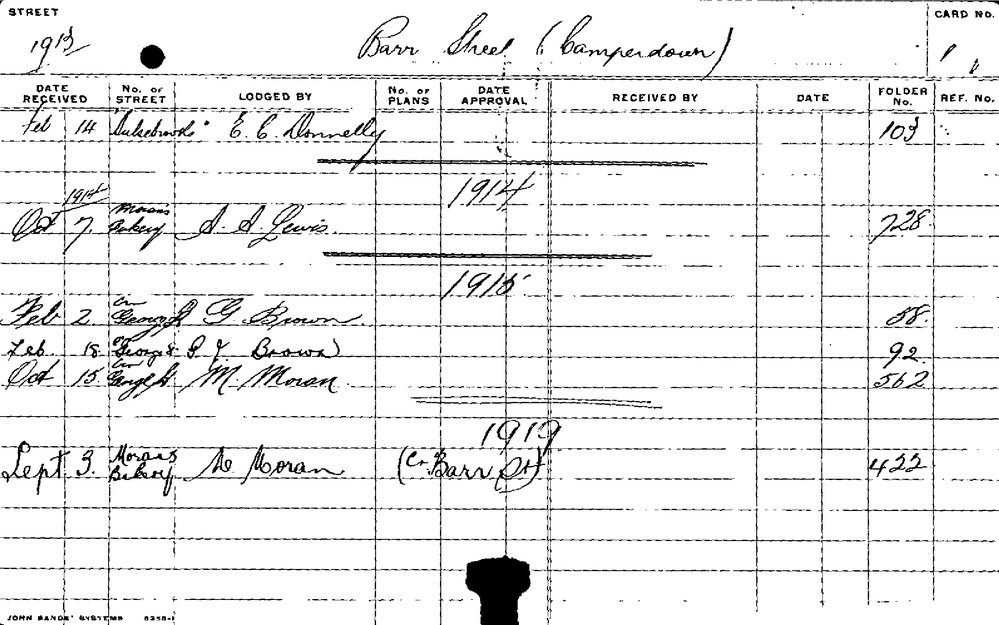 STREET
CARD NO.
1913
Barr Street (Camperdown)
1
DATE RECEIVED No. OF STREET LODGED BY No. OF PLANS DATE APPROVAL RECEIVED BY DATE FOLDER No. REF. No.
Feb 14 E. C. Donnelly 103
1914
1914
Oct 7. Moran's Bakery A. A. Lewis. 728.
1915
Feb 2. Cnr George St G. Brown. 58.
Feb. 18. George St. Brown 92.
Oct 15. Cnr George St M Moran. 562
1919
Sept 3. Morans Bakery M Moran (Cnr Barr St) 422
JOHN SANDS' SYSTEMS 8258-1